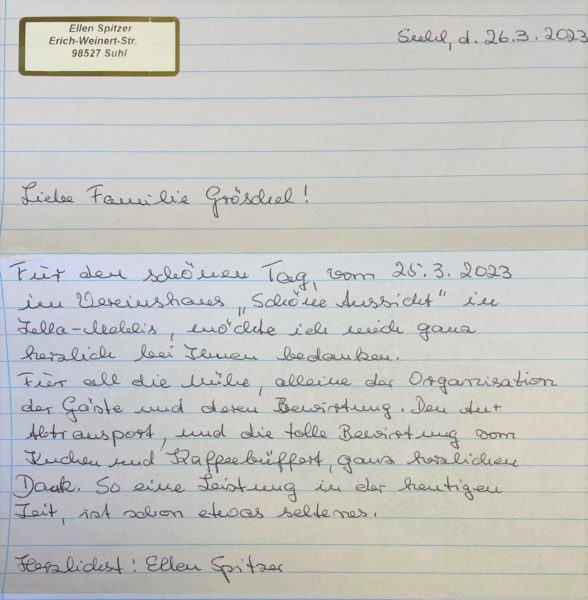 Ellen Spitzer
Erich-Weinert-Str.
98527 Suhl
Suhl, d. 26.3.2023
Liebe Familie Gröschel!
Für den schönen Tag, vom 25.3.2023
im Vereinshaus „Schöne Aussicht" in
Zella-Mehlis, möchte ich mich ganz
herzlich bei Ihnen bedanken.
Für all die Mühe, alleine der Organisation
der Gäste und deren Bewirtung. Den An-
Abtransport, und die tolle Bewirtung vom
Kuchen und Kaffeebüffert, ganz herzlichen
Dank. So eine Leistung in der heutigen
Zeit, ist schon etwas seltenes.
Herzlichst! Ellen Spitzer